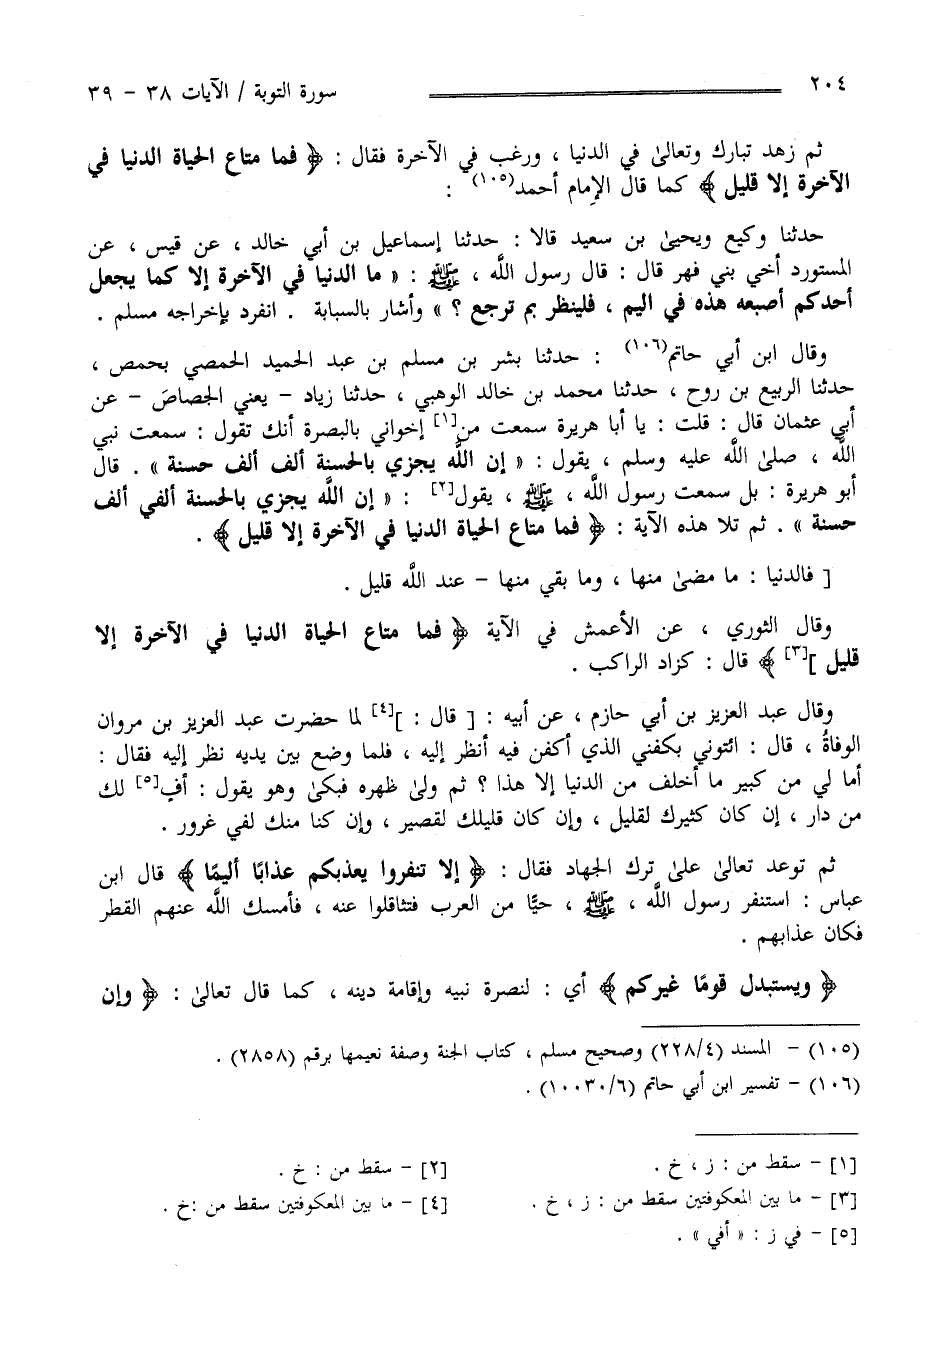 ٢٠٤
سورة التوبة / الآيات ٣٨ - ٣٩
ثم زهد تبارك وتعالىٰ في الدنيا ، ورغب في الآخرة فقال : ﴿ فما متاع الحياة الدنيا في
الآخرة إلا قليل ﴾ كما قال الإمام أحمد(١٠٥) :
حدثنا وكيع ويحيىٰ بن سعيد قالا : حدثنا إسماعيل بن أبي خالد ، عن قيس ، عن
المستورد أخي بني فهر قال : قال رسول اللَّه ، ﷺ : « ما الدنيا في الآخرة إلا كما يجعل
أحدكم أصبعه هذه في اليم ، فلينظر بم ترجع ؟ » وأشار بالسبابة . انفرد بإخراجه مسلم .
وقال ابن أبي حاتم(١٠٦) : حدثنا بشر بن مسلم بن عبد الحميد الحمصي بحمص ،
حدثنا الربيع بن روح ، حدثنا محمد بن خالد الوهبي ، حدثنا زياد - يعني الجصاص - عن
أبي عثمان قال : قلت : يا أبا هريرة سمعت من[١] إخواني بالبصرة أنك تقول : سمعت نبي
اللَّه ، صلىٰ اللَّه عليه وسلم ، يقول : « إن اللَّه يجزي بالحسنة ألف ألف حسنة » . قال
أبو هريرة : بل سمعت رسول اللَّه ، ﷺ ، يقول[٢] : « إن اللَّه يجزي بالحسنة ألفي ألف
حسنة » . ثم تلا هذه الآية : ﴿ فما متاع الحياة الدنيا في الآخرة إلا قليل ﴾ .
[ فالدنيا : ما مضىٰ منها ، وما بقي منها - عند اللَّه قليل .
وقال الثوري ، عن الأعمش في الآية ﴿ فما متاع الحياة الدنيا في الآخرة إلا
قليل ][٣] ﴾ قال : كزاد الراكب .
وقال عبد العزيز بن أبي حازم ، عن أبيه : [ قال : ][٤] لما حضرت عبد العزيز بن مروان
الوفاةُ ، قال : ائتوني بكفني الذي أكفن فيه أنظر إليه ، فلما وضع بين يديه نظر إليه فقال :
أما لي من كبير ما أخلف من الدنيا إلا هذا ؟ ثم ولىٰ ظهره فبكىٰ وهو يقول : أفٍ[٥] لك
من دار ، إن كان كثيرك لقليل ، وإن كان قليلك لقصير ، وإن كنا منك لفي غرور .
ثم توعد تعالىٰ علىٰ ترك الجهاد فقال : ﴿ إلا تنفروا يعذبكم عذابًا أليمًا ﴾ قال ابن
عباس : استنفر رسول اللَّه ، ﷺ ، حيًّا من العرب فتثاقلوا عنه ، فأمسك اللَّه عنهم القطر
فكان عذابهم .
﴿ ويستبدل قومًا غيركم ﴾ أي : لنصرة نبيه وإقامة دينه ، كما قال تعالىٰ : ﴿ وإن
(١٠٥) - المسند (٢٢٨/٤) وصحيح مسلم ، كتاب الجنة وصفة نعيمها برقم (٢٨٥٨) .
(١٠٦) - تفسير ابن أبي حاتم (١٠٠٣٠/٦) .
[١] - سقط من : ز ، خ .
[٢] - سقط من : خ .
[٣] - ما بين المعكوفتين سقط من : ز ، خ .
[٤] - ما بين المعكوفتين سقط من :خ .
[٥] - في ز : « أفي » .